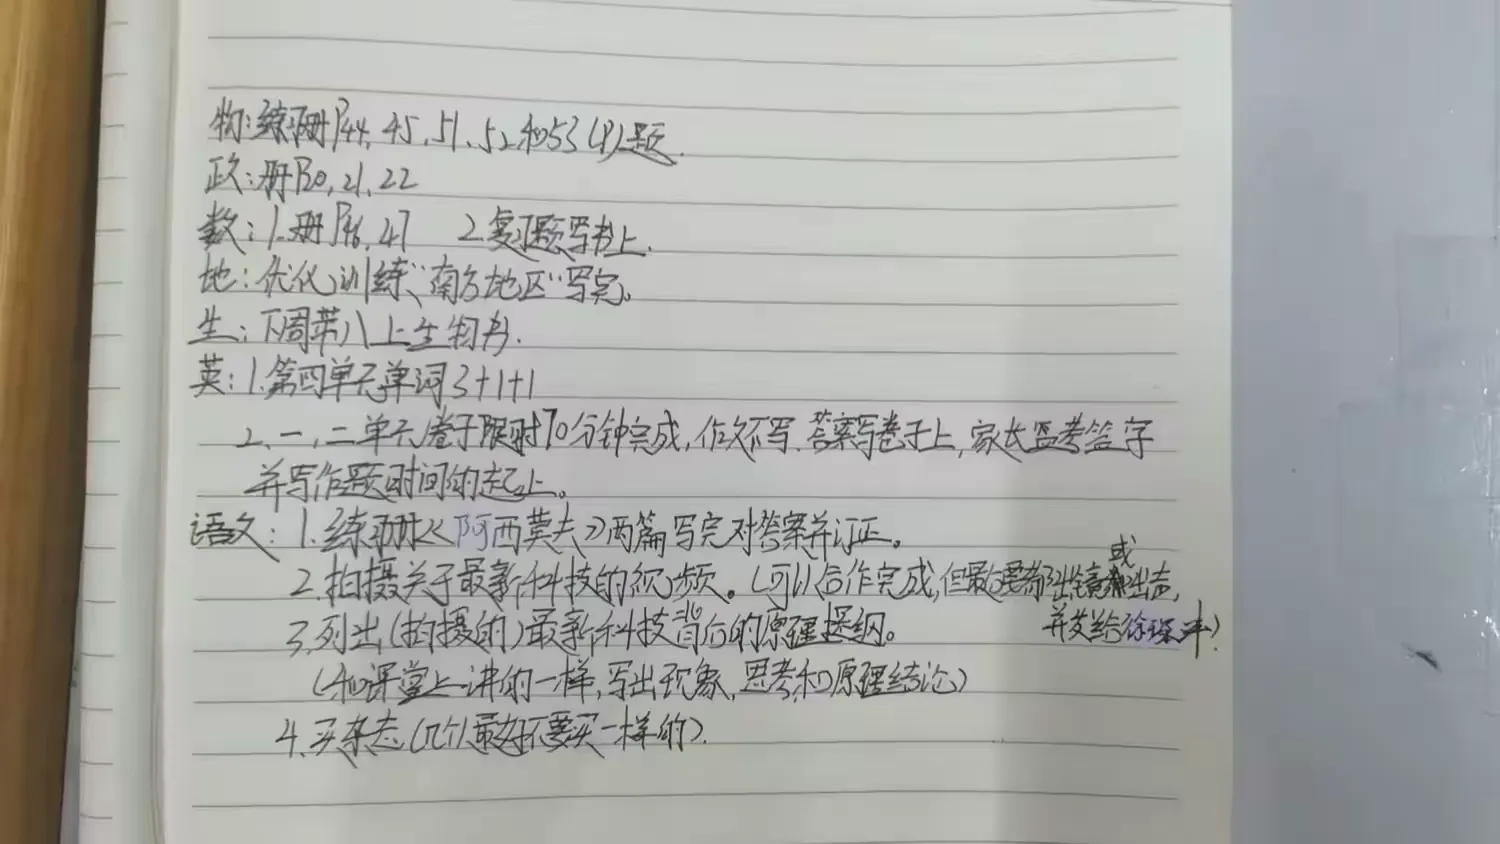 物:练册P44,45,51、52和53(4)题.
政:册P20,21,22
数:1.册P46,47 2.复习题写书上.
地:优化训练“南方地区”写完。
生:下周带八上生物书.
英:1.第四单元单词3+1+1
2.一,二单元卷子限时70分钟完成,作文不写.答案写卷子上,家长监考签字
并写作题时间的起止。
语文:1.练册《阿西莫夫》两篇写完对答案并订正。
2.拍摄关于最新科技的视频。(可以合作完成,但最后要都出镜或出声,
并发给徐琛)
3.列出(拍摄的)最新科技背后的原理提纲。
(和课堂上讲的一样,写出现象,思考,和原理结论)
4.买杂志(几个最好不要买一样的).